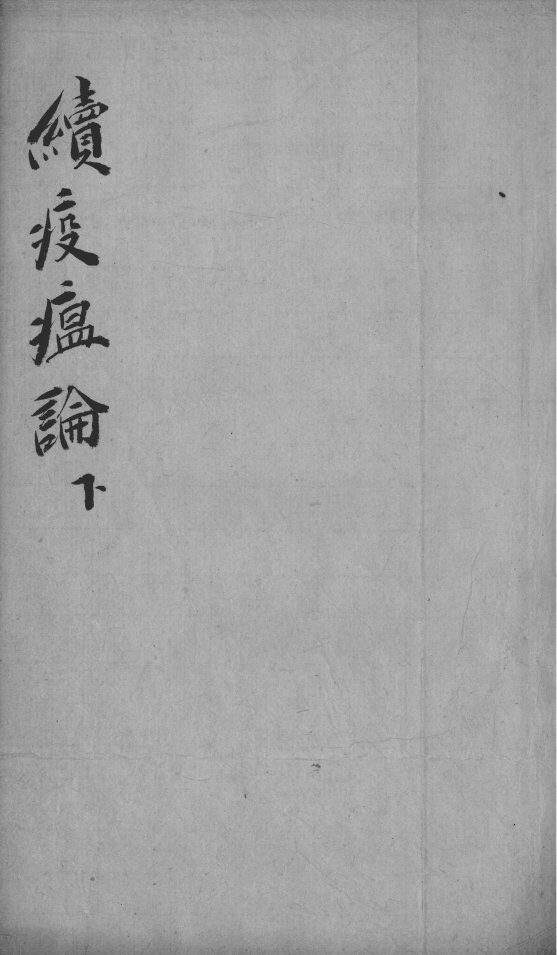 續疫瘟論下